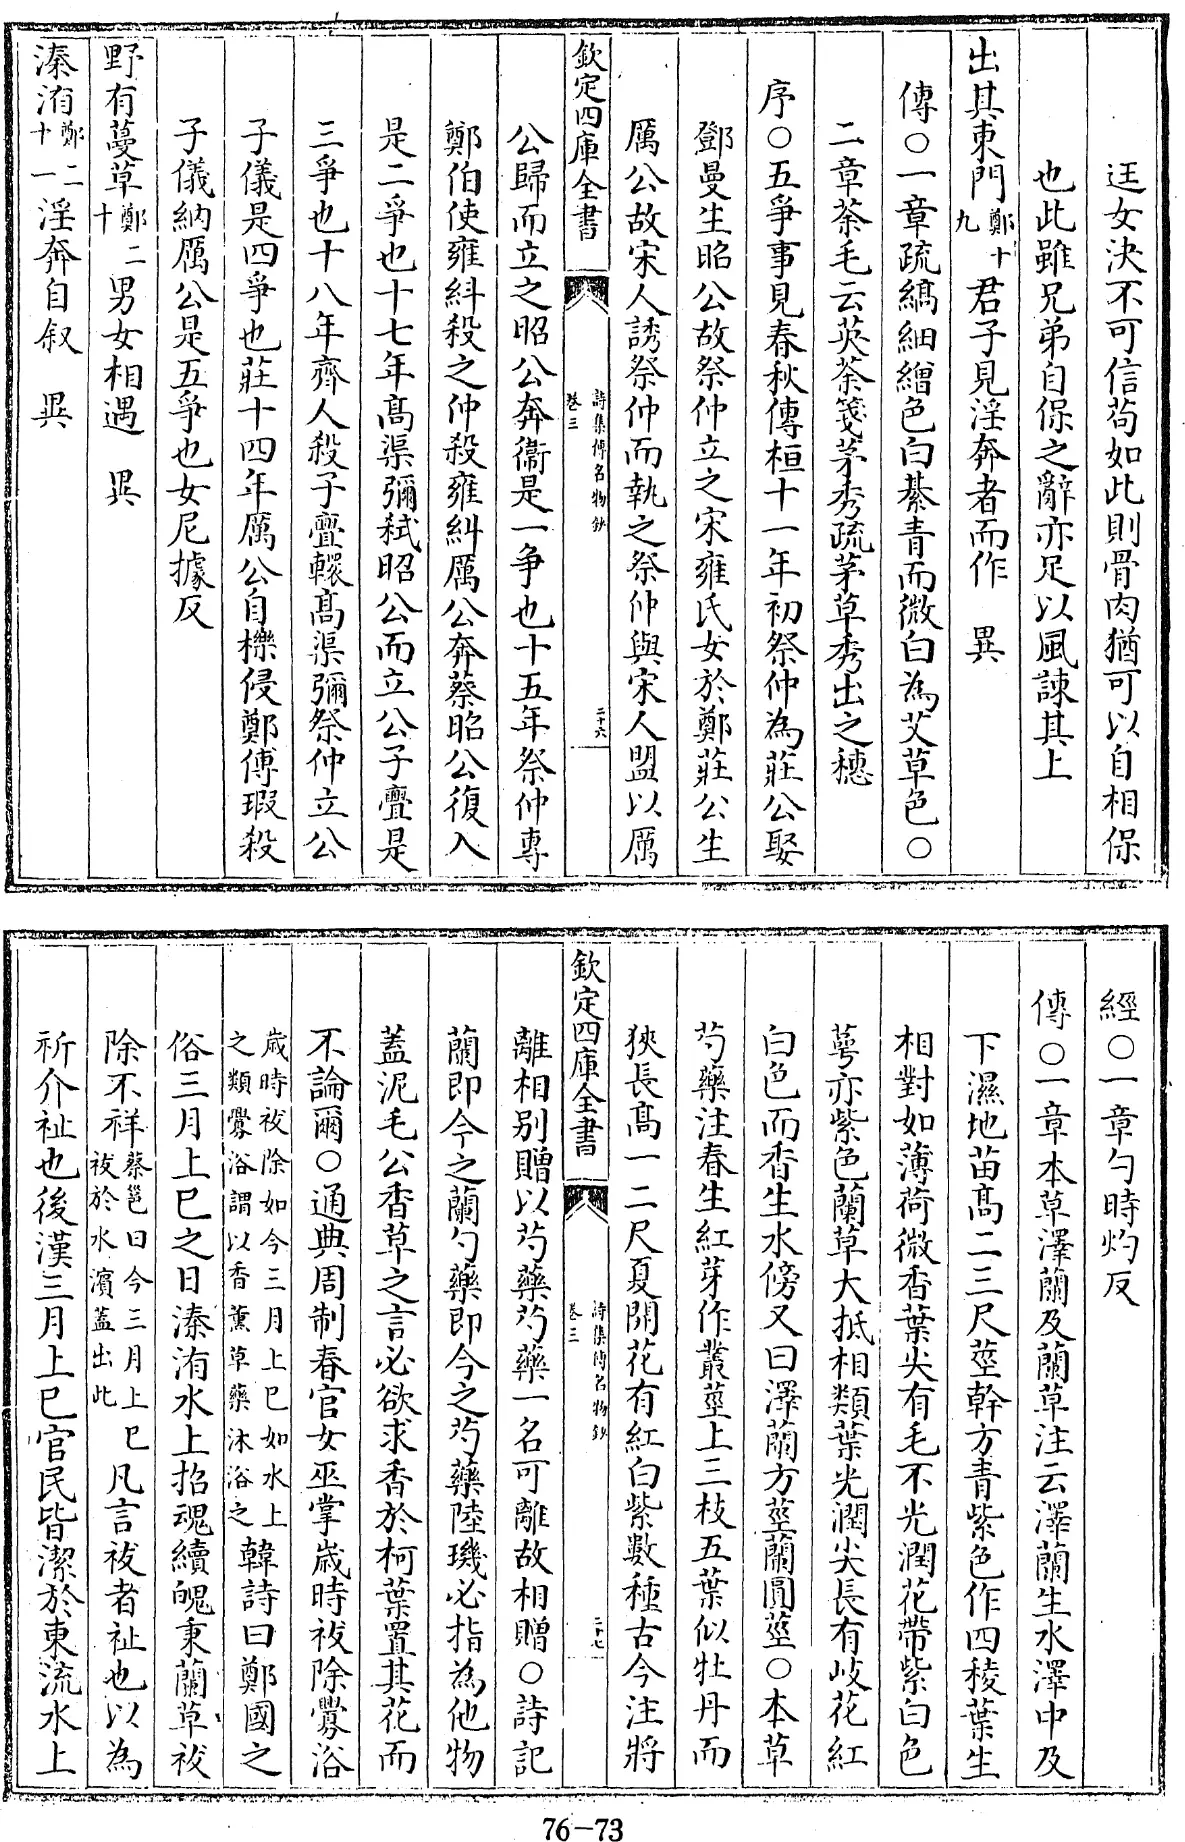 迋女決不可信苟如此則骨肉猶可以自相保
也此雖兄弟自保之辭亦足以風諫其上
出其東門鄭十九君子見淫奔者而作 異
傳○一章疏縞細繒色白綦青而微白為艾草色○
二章荼毛云英荼箋茅秀疏茅草秀出之穗
序○五爭事見春秋傳桓十一年初祭仲為莊公娶
鄧曼生昭公故祭仲立之宋雍氏女於鄭莊公生
厲公故宋人誘祭仲而執之祭仲與宋人盟以厲
欽定四庫全書
詩集傳名物鈔
卷三
二十六
公歸而立之昭公奔衞是一爭也十五年祭仲專
鄭伯使雍糾殺之仲殺雍糾厲公奔蔡昭公復入
是二爭也十七年髙渠彌弒昭公而立公子亹是
三爭也十八年齊人殺子亹轘髙渠彌祭仲立公
子儀是四爭也莊十四年厲公自櫟侵鄭傅瑕殺
子儀納厲公是五爭也女尼據反
野有蔓草鄭二十男女相遇 異
溱洧鄭二十一淫奔自叙 異
經○一章勺時灼反
傳○一章本草澤蘭及蘭草注云澤蘭生水澤中及
下濕地苗髙二三尺莖幹方青紫色作四稜葉生
相對如薄荷微香葉尖有毛不光潤花帶紫白色
萼亦紫色蘭草大抵相類葉光潤尖長有岐花紅
白色而香生水傍又曰澤蘭方莖蘭圓莖○本草
芍藥注春生紅芽作叢莖上三枝五葉似牡丹而
狹長髙一二尺夏開花有紅白紫數種古今注將
欽定四庫全書
詩集傳名物鈔
卷三
二十七
離相别贈以芍藥芍藥一名可離故相贈○詩記
蘭即今之蘭勺藥即今之芍藥陸璣必指為他物
蓋泥毛公香草之言必欲求香於柯葉置其花而
不論爾○通典周制春官女巫掌歲時祓除釁浴
歲時祓除如今三月上巳如水上之類釁浴謂以香薰草藥沐浴之韓詩曰鄭國之
俗三月上巳之日溱洧水上招魂續魄秉蘭草祓
除不祥蔡邕曰今三月上巳祓於水濱蓋出此凡言祓者祉也以為
祈介祉也後漢三月上巳官民皆潔於東流水上
76-73